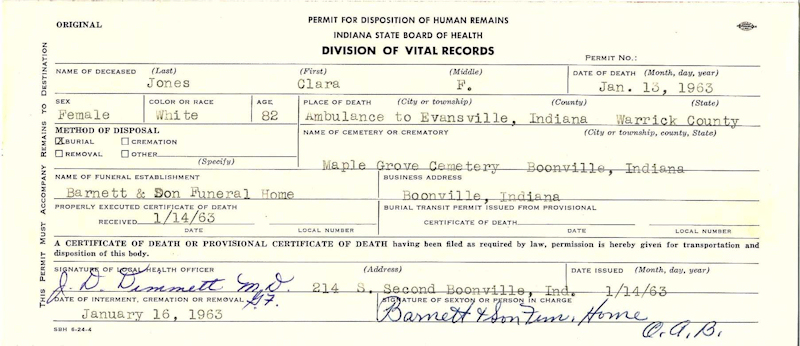 ORIGINAL
PERMIT FOR DISPOSITION OF HUMAN REMAINS
INDIANA STATE BOARD OF HEALTH
DIVISION OF VITAL RECORDS
PERMIT NO.:
THIS PERMIT MUST ACCOMPANY REMAINS TO DESTINATION
NAME OF DECEASED (Last) (First) (Middle) DATE OF DEATH (Month, day, year)
Jones Clara F. Jan. 13, 1963
SEX COLOR OR RACE AGE PLACE OF DEATH (City or township) (County) (State)
Female White 82 Ambulance to Evansville, Indiana Warrick County
METHOD OF DISPOSAL NAME OF CEMETERY OR CREMATORY (City or township, county, State)
X BURIAL CREMATION
REMOVAL OTHER
(Specify) Maple Grove Cemetery Boonville, Indiana
NAME OF FUNERAL ESTABLISHMENT BUSINESS ADDRESS
Barnett & Son Funeral Home Boonville, Indiana
PROPERLY EXECUTED CERTIFICATE OF DEATH BURIAL TRANSIT PERMIT ISSUED FROM PROVISIONAL
RECEIVED 1/14/63 CERTIFICATE OF DEATH
DATE LOCAL NUMBER DATE LOCAL NUMBER
A CERTIFICATE OF DEATH OR PROVISIONAL CERTIFICATE OF DEATH having been filed as required by law, permission is hereby given for transportation and
disposition of this body.
SIGNATURE OF LOCAL HEALTH OFFICER (Address) DATE ISSUED (Month, day, year)
J. D. Dimmett M.D. 214 S. Second Boonville, Ind. 1/14/63
DATE OF INTERMENT, CREMATION OR REMOVAL G.F. SIGNATURE OF SEXTON OR PERSON IN CHARGE
January 16, 1963 Barnett & Son Fun. Home
O.A.B.
SBH 6-24-4